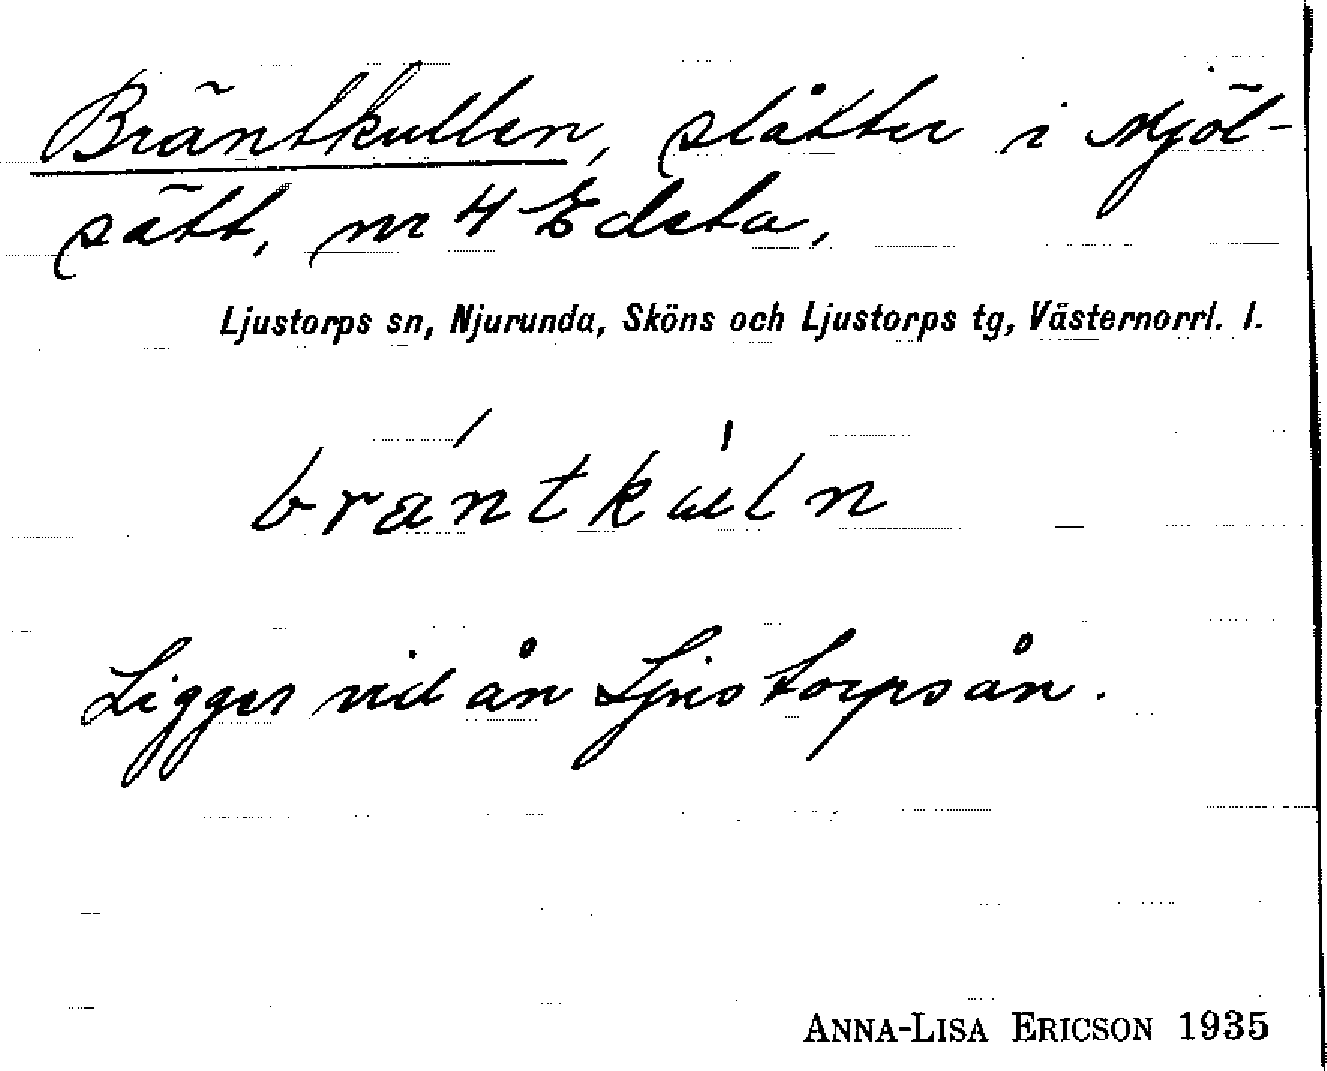 Bräntkullen, slåtter i Mjöl-
sätt, nr 4 Edsta,
Ljustorps sn, Njurunda, Sköns och Ljustorps tg, Västernorrl. l.
Ligger vid ån Ljustorpsån.
ANNA-LISA ERICSON 1935